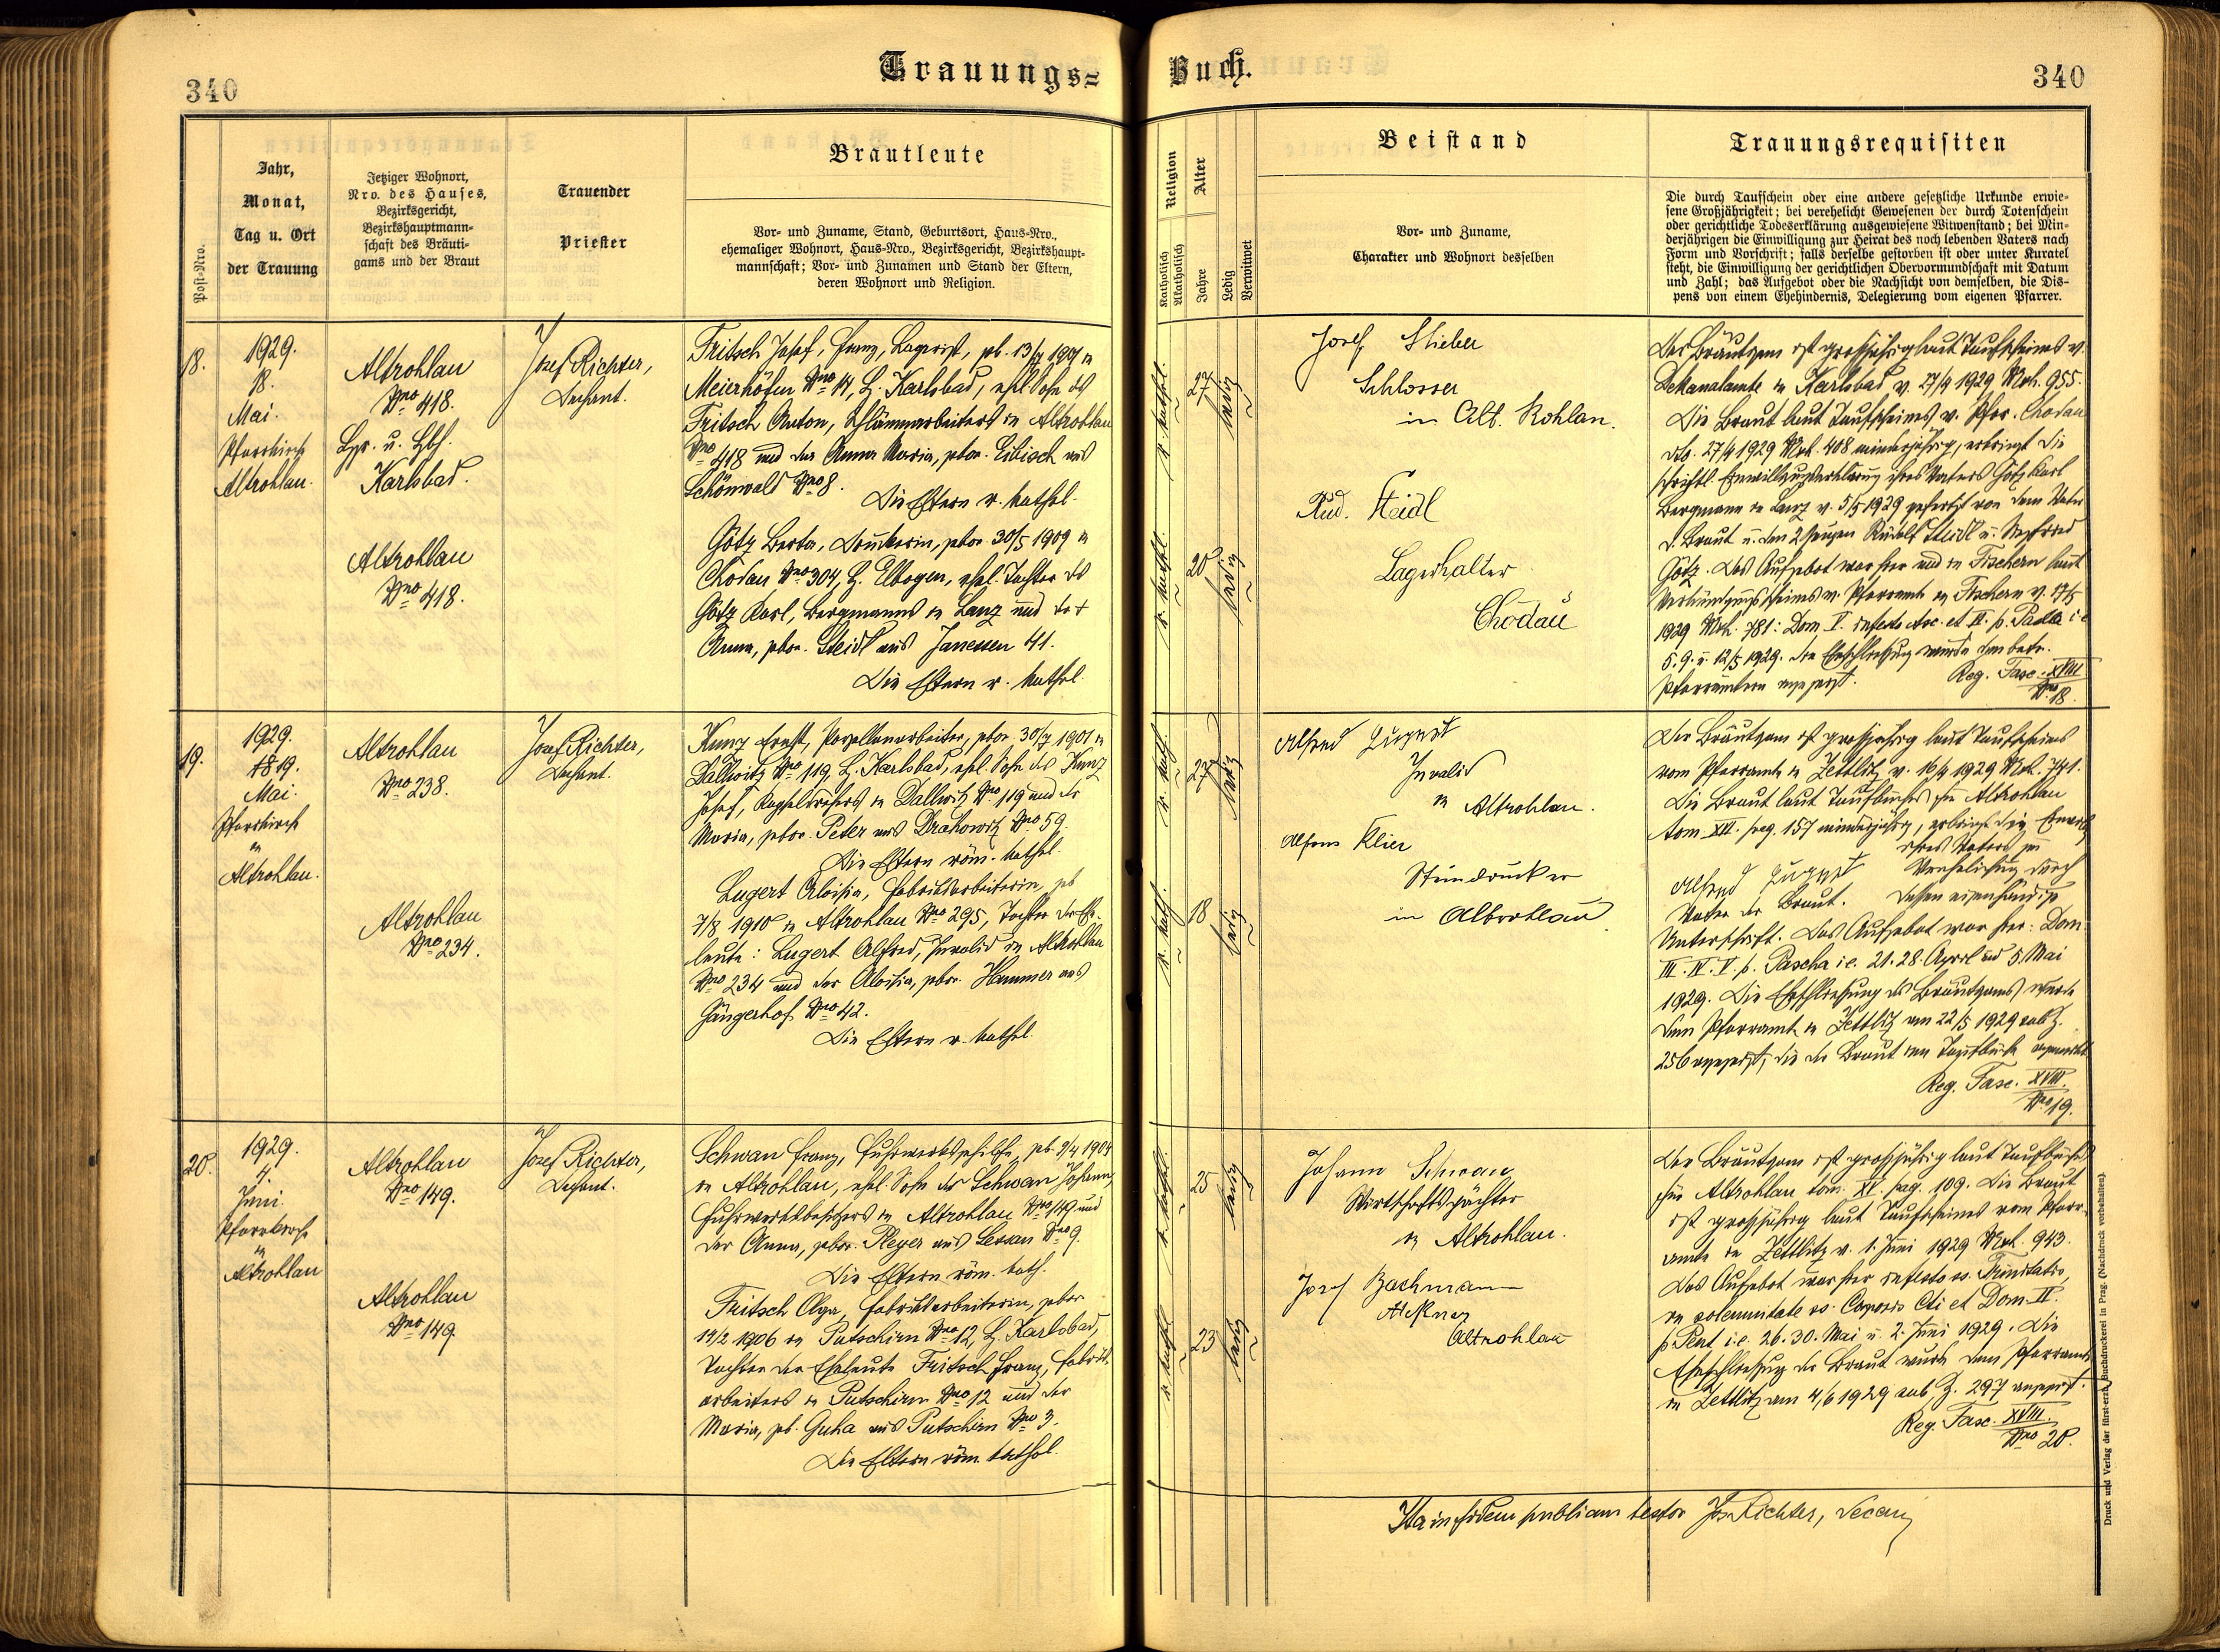 340
Trauungs-
Buch.
340
Post-Nro.
Jahr,
Monat,
Tag u. Ort
der Trauung
Jetziger Wohnort,
Nro. des Hauses,
Bezirksgericht,
Bezirkshauptmann-
schaft des Bräuti-
gams und der Braut
Trauender
Priester
Brautleute
Vor- und Zuname, Stand, Geburtsort, Haus-Nro.,
ehemaliger Wohnort, Haus-Nro., Bezirksgericht, Bezirkshaupt-
mannschaft; Vor- und Zunamen und Stand der Eltern,
deren Wohnort und Religion.
Religion
Katholisch
Akatholisch
Alter
Jahre
Ledig
Verwitwet
Beistand
Vor- und Zuname,
Charakter und Wohnort desselben
Trauungsrequisiten
Die durch Taufschein oder eine andere gesetzliche Urkunde erwie-
sene Großjährigkeit; bei verehelicht Gewesenen der durch Totenschein
oder gerichtliche Todeserklärung ausgewiesene Witwenstand; bei Min-
derjährigen die Einwilligung zur Heirat des noch lebenden Vaters nach
Form und Vorschrift; falls derselbe gestorben ist oder unter Kuratel
steht, die Einwilligung der gerichtlichen Obervormundschaft mit Datum
und Zahl; das Aufgebot oder die Nachsicht von demselben, die Dis-
pens von einem Ehehindernis, Delegierung vom eigenen Pfarrer.
18.
1929.
18.
Mai.
Pfarrkirche
Altrohlau.
Altrohlau
Nro 418.
Karlsbad.
Altrohlau
Nro 418.
Josef Richter,
Dechant.
Fritsch Josef, Franz, Lagerist, geb. 13/7 1901 in
Meierhöfen Nro 14, B. Karlsbad, ehel. Sohn des
Fritsch Anton, Schlämmarbeiters in Altrohlau
Nro 418 und der Anna Maria, gebor. Eibisch aus
Schönwald Nro 8.
Die Eltern r. kathol.
Götz Berta, Druckerin, gebor. 30/5 1909 in
Chodau Nro 304, B. Elbogen, ehel. Tochter des
Götz Karl, Bergmanns in Lanz und der †
Anna, gebor. Steidl aus Janessen 41.
Die Eltern r. kathol.
r. kathol.
27
ledig
r. kathol.
20
ledig
Josef Stieber
Schlosser
in Alt. Rohlau.
Rud. Steidl
Lagerhalter
Chodau
Der Bräutigam ist großjährig laut Taufscheines v.
Dekanalamte in Karlsbad v. 27/4 1929 Mat. 955.
Die Braut laut Taufscheines v. Pfar. Chodau
dto. 27/4 1929 Mat. 408 minderjährig, erbringt die
schriftl. Einwilligungserklärung ihres Vaters Götz Karl
Bergmann in Lanz v. 5/5 1929 gefertigt von dem Vater
d. Braut u. den 2 Zeugen Rudolf Steidl u.
Götz. Das Aufgebot war hier und in Fischern laut
Verkündigungsscheines v. Pfarramte in Fischern v. 17/5
1929 Mat. 781: Dom. V. in festo Asc. et VI. p. Pascha i.e.
5. 9. u. 12/5 1929. Die Eheschließung wurde den betr.
Pfarrämtern angezeigt.
Reg. Fasc. XVIII
Nro 18.
19.
1929.
19.
Mai.
Pfarrkirche
in
Altrohlau.
Altrohlau
Nro 238.
Altrohlau
Nro 234.
Josef Richter,
Dechant.
Kunz Ernst, Porzellanarbeiter, gebor. 30/7 1901 in
Dallwitz Nro 119, B. Karlsbad, ehel. Sohn des Kunz
Josef, Kapseldrehers in Dallwitz Nro 119 und der
Maria, gebor. Peter aus Drahowitz Nro 59.
Die Eltern röm. kathol.
Lugert Aloisia, Fabriksarbeiterin, geb.
7/8 1910 in Altrohlau Nro 295, Tochter der Ehe-
leute: Lugert Alfred, Invalid in Altrohlau
Nro 234 und der Aloisia, gebor. Hammer aus
Gängerhof Nro 42.
Die Eltern r. kathol.
r. kath.
27
ledig
r. kath.
18
ledig
Alfred Lugert
Invalid
in Altrohlau.
Alfons Klier
Steindrucker
in Altrohlau.
Der Bräutigam ist großjährig laut Taufscheines
vom Pfarramte in Zettlitz v. 16/4 1929 Mat. 741.
Die Braut laut Taufbuches für Altrohlau
tom. XVI. pag. 157 minderjährig, erbringt die Einwillig.
ihres Vaters zur
Alfred Lugert Verehelichung durch
Vater der Braut. dessen eigenhändige
Unterschrift. Das Aufgebot war hier: Dom.
III. IV. V. p. Pascha i.e. 21. 28. April und 5. Mai
1929. Die Eheschließung des Bräutigams wurde
dem Pfarramte in Zettlitz am 22/5 1929 sub Z.
256 angezeigt, die der Braut im Taufbuche angemerkt.
Reg. Fasc. XVIII.
Nro 19.
20.
1929.
4.
Juni.
Pfarrkirche
in
Altrohlau
Altrohlau
Nro 149.
Altrohlau
Nro 149.
Josef Richter,
Dechant.
Schwan Franz, Fuhrwerksgehilfe, geb. 9/4 1904
in Altrohlau, ehel. Sohn des Schwan Johann,
Fuhrwerksbesitzers in Altrohlau Nro 149 und
der Anna, gebor. Pleyer aus Lessau Nro 9.
Die Eltern röm. kath.
Fritsch Olga, Fabriksarbeiterin, gebor.
14/2 1906 in Putschirn Nro 12, B. Karlsbad,
Tochter der Eheleute Fritsch Franz, Fabriks-
arbeiters in Putschirn Nro 12 und der
Maria, geb. Guha aus Putschirn Nro 3.
Die Eltern röm. kathol.
r. kathol.
25
ledig
r. kathol.
23
ledig
Johann Schwan
Wirtschaftspächter
in Altrohlau.
Josef Bachmann
Altrohlau
Der Bräutigam ist großjährig laut Taufbuches
für Altrohlau tom. XV. pag. 109. Die Braut
ist großjährig laut Taufscheines vom Pfarr-
amte in Zettlitz v. 1. Juni 1929 Mat. 943.
Das Aufgebot war hier in festo ss. Trinitatis,
in solemnitate ss. Corporis Cti et Dom. II.
p. Pent. i.e. 26. 30. Mai u. 2. Juni 1929. Die
Eheschließung der Braut wurde dem Pfarramte
in Zettlitz am 4/6 1929 sub Z. 297 angezeigt.
Reg. Fasc. XVIII.
Nro 20.
Ita in fidem publicam testor Jos. Richter, Decan
Druck und Verlag der fürst-erzb. Buchdruckerei in Prag. (Nachdruck vorbehalten.)